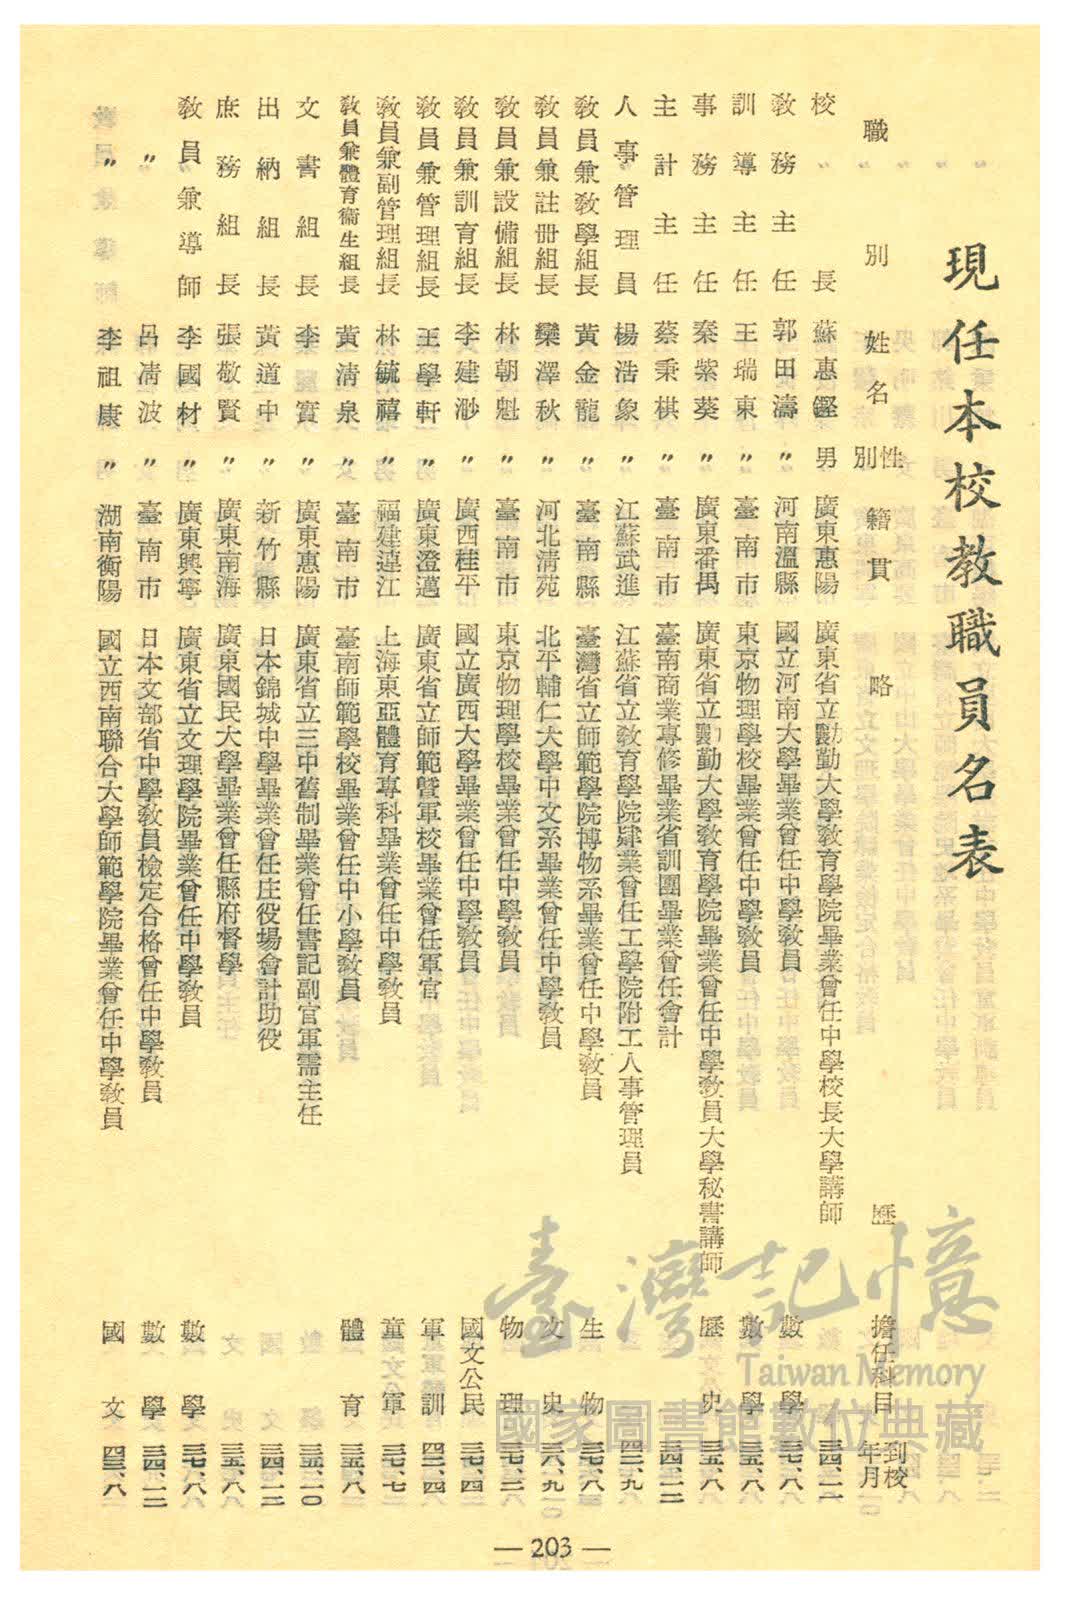 現任本校教職員名表
職別 姓名 性別 籍貫 略歷 擔任科目 到校年月
校長 蘇惠鏗 男 廣東惠陽 廣東省立勷勤大學教育學院畢業曾任中學校長大學講師
教務主任 郭田濤 〃 河南溫縣 國立河南大學畢業曾任中學教員 數學
訓導主任 王瑞東 〃 臺南市 東京物理學校畢業曾任中學教員 數學
事務主任 秦紫葵 〃 廣東番禺 廣東省立勷勤大學教育學院畢業曾任中學教員大學秘書講師 歷史
主計主任 蔡秉棋 〃 臺南市 臺南商業專修畢業省訓團畢業曾任會計
人事管理員 楊浩象 〃 江蘇武進 江蘇省立教育學院肄業曾任工學院附工人事管理員
教員兼教學組長 黃金龍 〃 臺南縣 臺灣省立師範學院博物系畢業曾任中學教員 生物
教員兼註冊組長 欒澤秋 〃 河北清苑 北平輔仁大學中文系畢業曾任中學教員 文史
教員兼設備組長 林朝魁 〃 臺南市 東京物理學校畢業曾任中學教員 物理
教員兼訓育組長 李建渺 〃 廣西桂平 國立廣西大學畢業曾任中學教員 國文公民
教員兼管理組長 王學軒 〃 廣東澄邁 廣東省立師範暨軍校畢業曾任軍官 軍訓
教員兼副管理組長 林毓禧 〃 福建連江 上海東亞體育專科畢業曾任中學教員 童軍
教員兼體育衞生組長 黃清泉 〃 臺南市 臺南師範學校畢業曾任中小學教員 體育
文書組長 李學實 〃 廣東惠陽 廣東省立三中舊制畢業曾任書記副官軍需主任
出納組長 黃道中 〃 新竹縣 日本錦城中學畢業曾任庄役場會計助役
庶務組長 張敬賢 〃 廣東南海 廣東國民大學畢業曾任縣府督學
教員兼導師 李國材 〃 廣東興寧 廣東省立文理學院畢業曾任中學教員 數學
〃 呂淸波 〃 臺南市 日本文部省中學教員檢定合格曾任中學教員 數學
〃 李祖康 〃 湖南衡陽 國立西南聯合大學師範學院畢業曾任中學教員 國文
— 203 —
臺灣記憶
Taiwan Memory
國家圖書館數位典藏